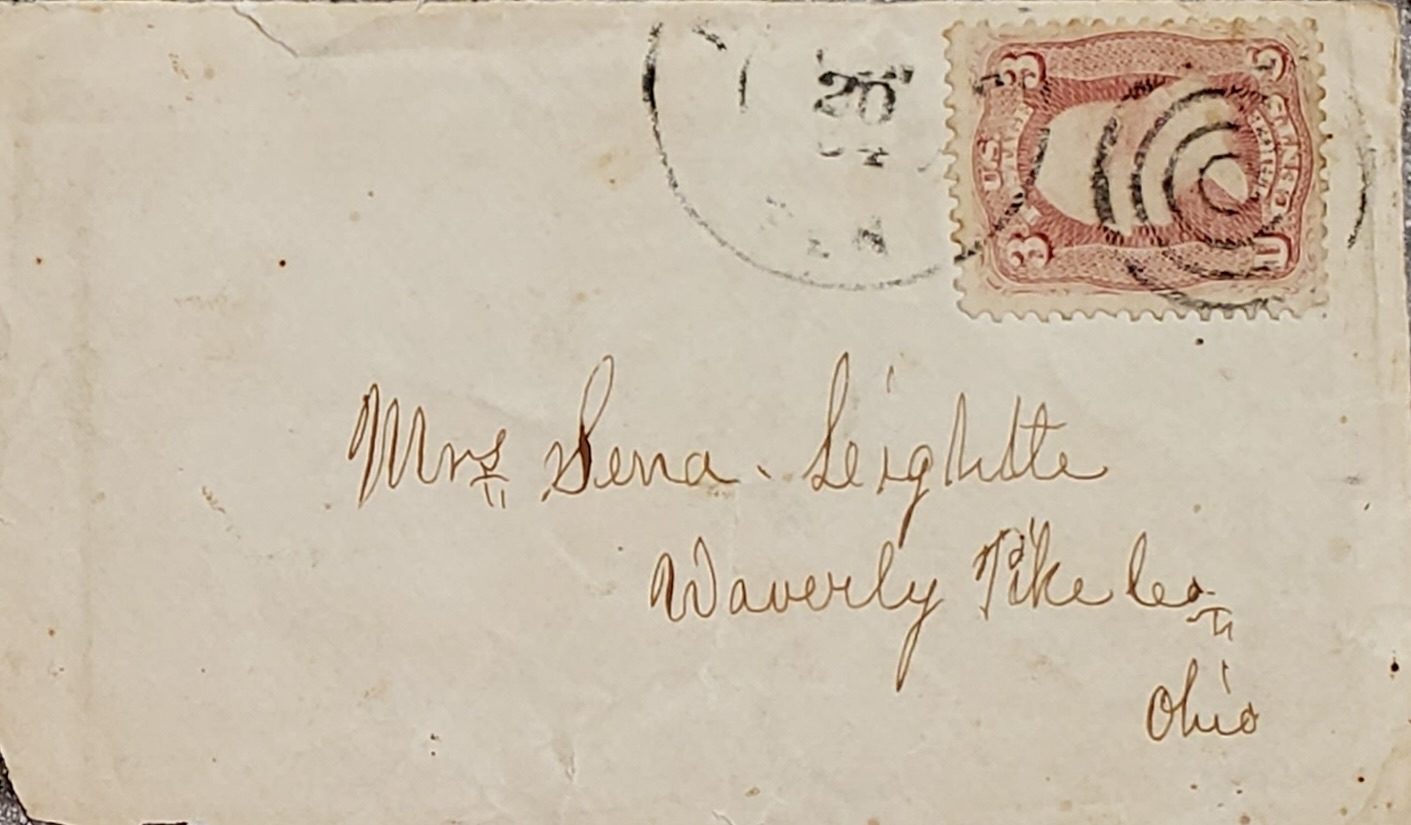 20
3 3
U.S. CENTS
Mrs Sena Leightte
Waverly Pike Co
Ohio